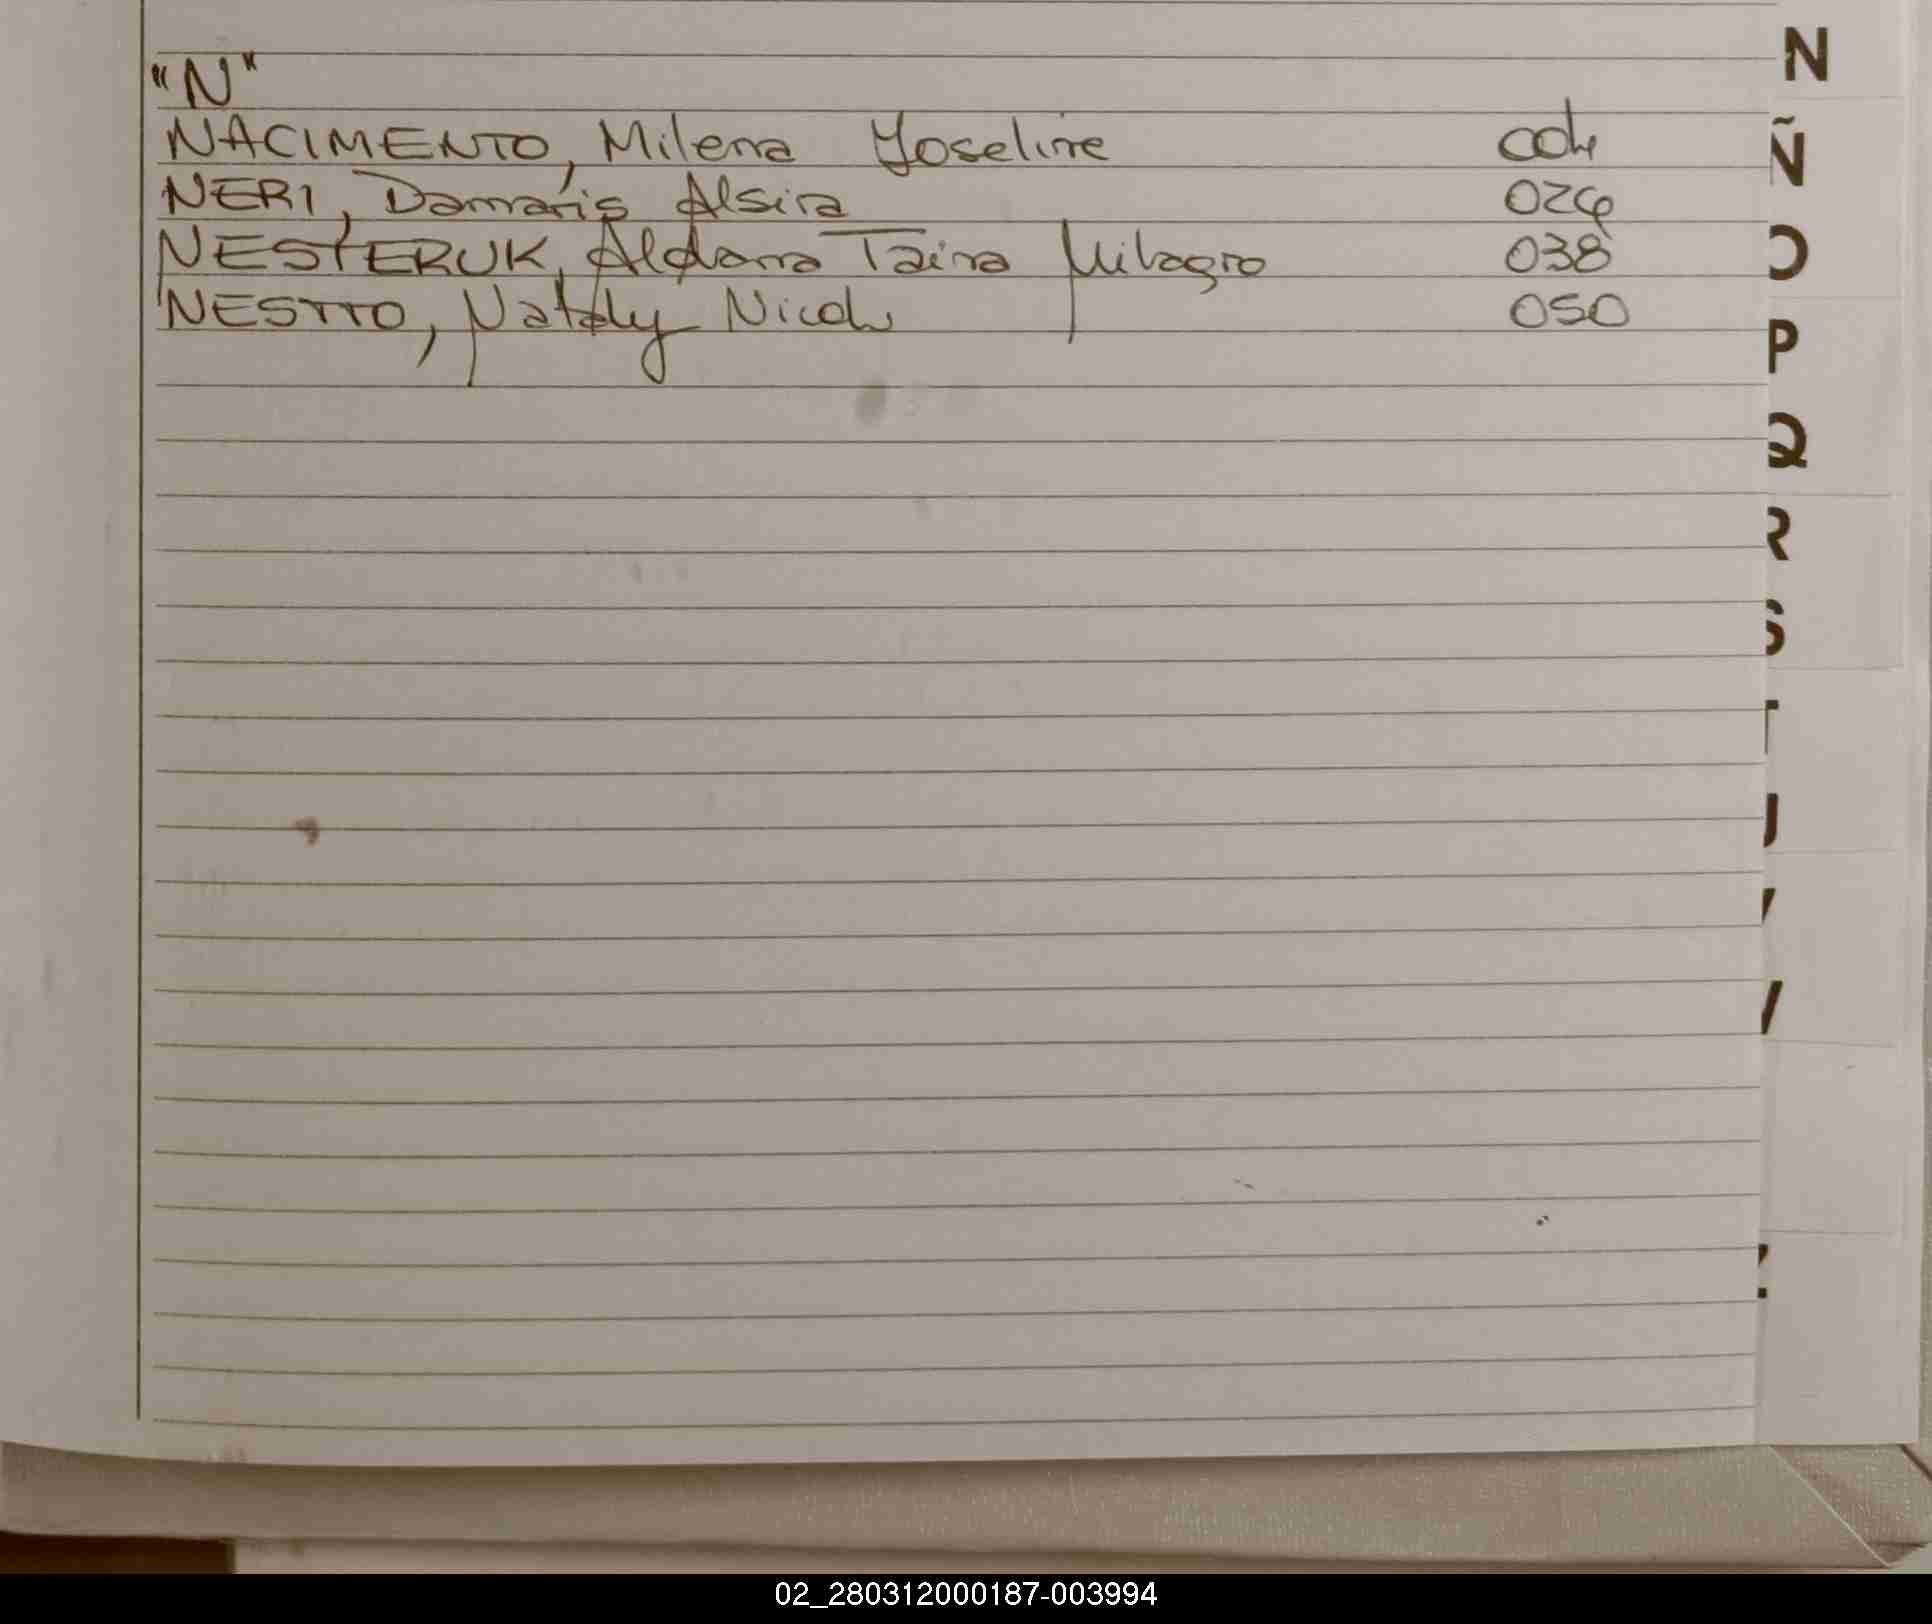 "N"
NACIMENTO, Milena Yoseline 004
NERI, Damaris Alsira 024
NESTERUK, Aldana Taina Milagro 038
NESTTO, Nataly Nicole 050
N
Ñ
O
P
Q
R
S
T
U
V
Z
02_280312000187-003994